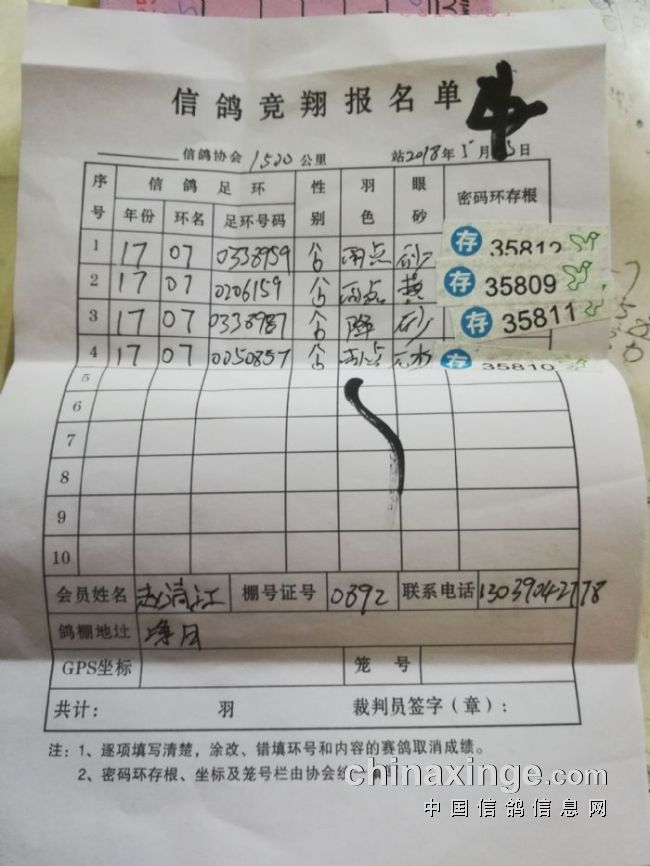 信鸽竞翔报名单
信鸽协会 1500 公里 站2018年5月 日
序号 信鸽足环 性别 羽色 眼砂 密码环存根
年份 环名 足环号码
1 17 07 0338959 雨点 砂 存 35812
2 17 07 0206159 雨点 黄 存 35809
3 17 07 0338987 降 砂 存 35811
4 17 07 0050857 雨点 存 35810
5
6
7
8
9
10
会员姓名 赵清江 棚号证号 0392 联系电话 13039042778
鸽棚地址 净月
GPS坐标 笼号
共计： 羽 裁判员签字（章）：
注：1、逐项填写清楚，涂改、错填环号和内容的赛鸽取消成绩。
2、密码环存根、坐标及笼号栏由协会
chinaxinge.com
中国信鸽信息网